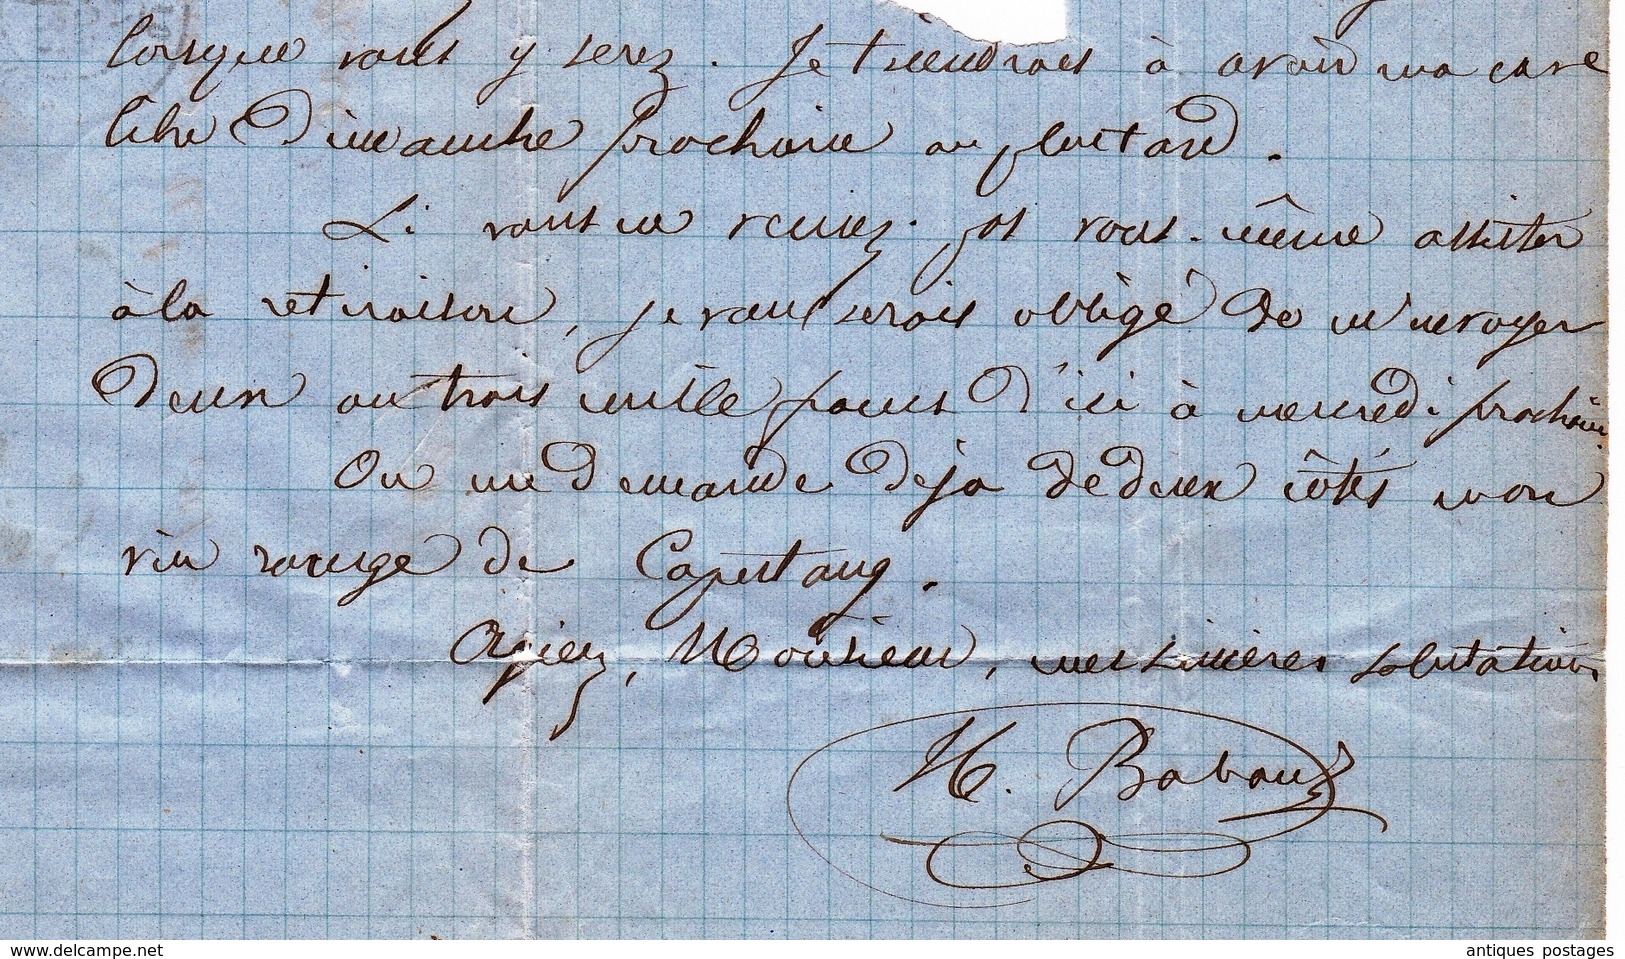 lorsque vous y serez. Je tiendrais à avoir ma cave
libre Dimanche prochain au plus tard.
Si vous ne venez pas vous-même assister
à la retiraison, je vous serais obligé de m'envoyer
deux ou trois mille francs d'ici à mercredi prochain.
On me demande déjà de deux côtés mon
vin rouge de Capestang.
Agréez, Monsieur, mes sincères salutations.
H. Babou
www.delcampe.net
antiques postages